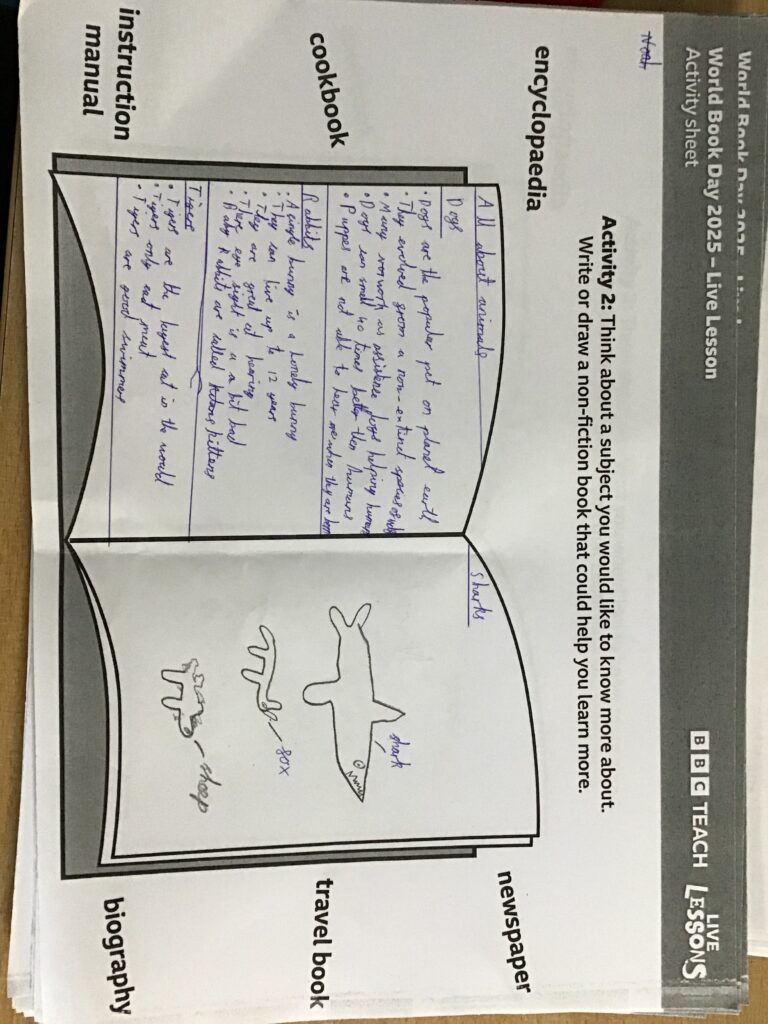 World Book Day 2025 – Live Lesson
World Book Day 2025 – Live Lesson
Activity sheet
BBC TEACH
LIVE
LESSONS
Noah
Activity 2: Think about a subject you would like to know more about.
Write or draw a non-fiction book that could help you learn more.
encyclopaedia
cookbook
instruction
manual
newspaper
travel book
biography
All about animals
Dogs
• Dogs are the popular pet on planet earth
• They evolved from a non-entinct species of
• Many work as assistence dogs helping
• Dogs can smell 40 times better then humans
• Puppes are not able to hear when they are born
Rabbits
• A single bunny is a lonely bunny
• They can live up to 12 years
• They are great at hearing
• There eye sight is a bit bad
• Baby Rabbits are called kittens
Tigers
• Tigers are the largest cat in the world
• Tigers only eat meat
• Tigers are good swimmers
Sharks
shark
fox
sheep